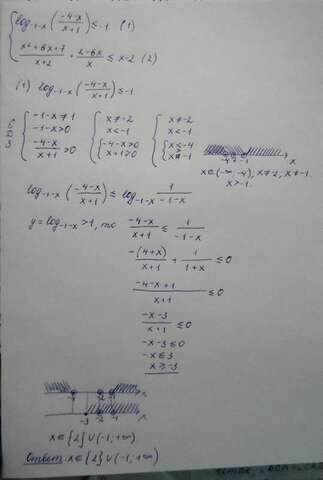 log₁₋ₓ((-4-x)/(x+1)) ≤ -1 (1)
(x²+6x+7)/(x+2) + (2-6x)/x ≤ x-2 (2)
(1) log₋₁₋ₓ((-4-x)/(x+1)) ≤ -1
ОДЗ { -1-x≠1 { x≠-2 { x≠-2
-1-x>0 x<-1 x<-1
(-4-x)/(x+1)>0 { -4-x>0 { x<-4
x+1>0 x≠-1
-4 -2 -1 x
x∈(-∞;-4), x≠-2, x≠-1
x>-1.
log₋₁₋ₓ((-4-x)/(x+1)) ≤ log₋₁₋ₓ 1/(-1-x)
y=log₋₁₋ₓ>1, то (-4-x)/(x+1) ≤ 1/(-1-x)
-(4+x)/(x+1) + 1/(1+x) ≤ 0
(-4-x+1)/(x+1) ≤ 0
(-x-3)/(x+1) ≤ 0
-x-3≤0
-x≤3
x≥-3
-4 -2 -1 x
-3 -2 -1 x
x∈{2}∪(-1;+∞)
Ответ: x∈{2}∪(-1;+∞)